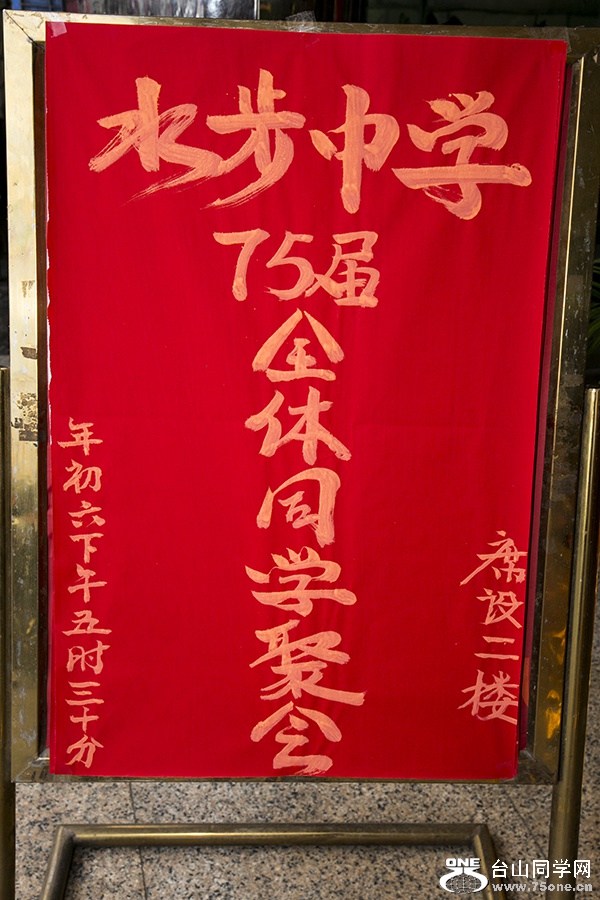 水步中学
75届
全体同学聚会
年初六下午五时三十分
席设二楼
ONE 台山同学网
www.75one.cn